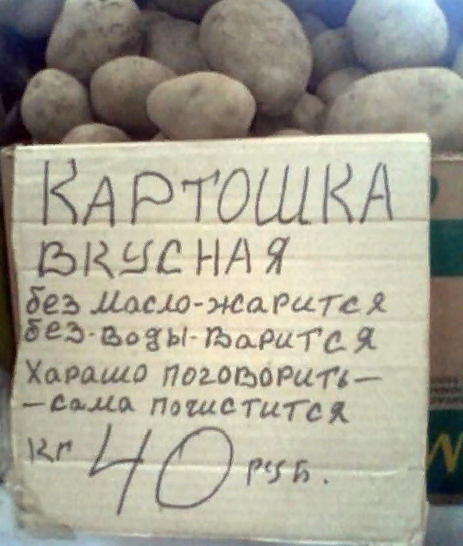 КАРТОШКА
ВКУСНАЯ
без Масло-жарится
без-воды-Варится
Харашо поговорить-
-сама почистится
кг 40 руб.